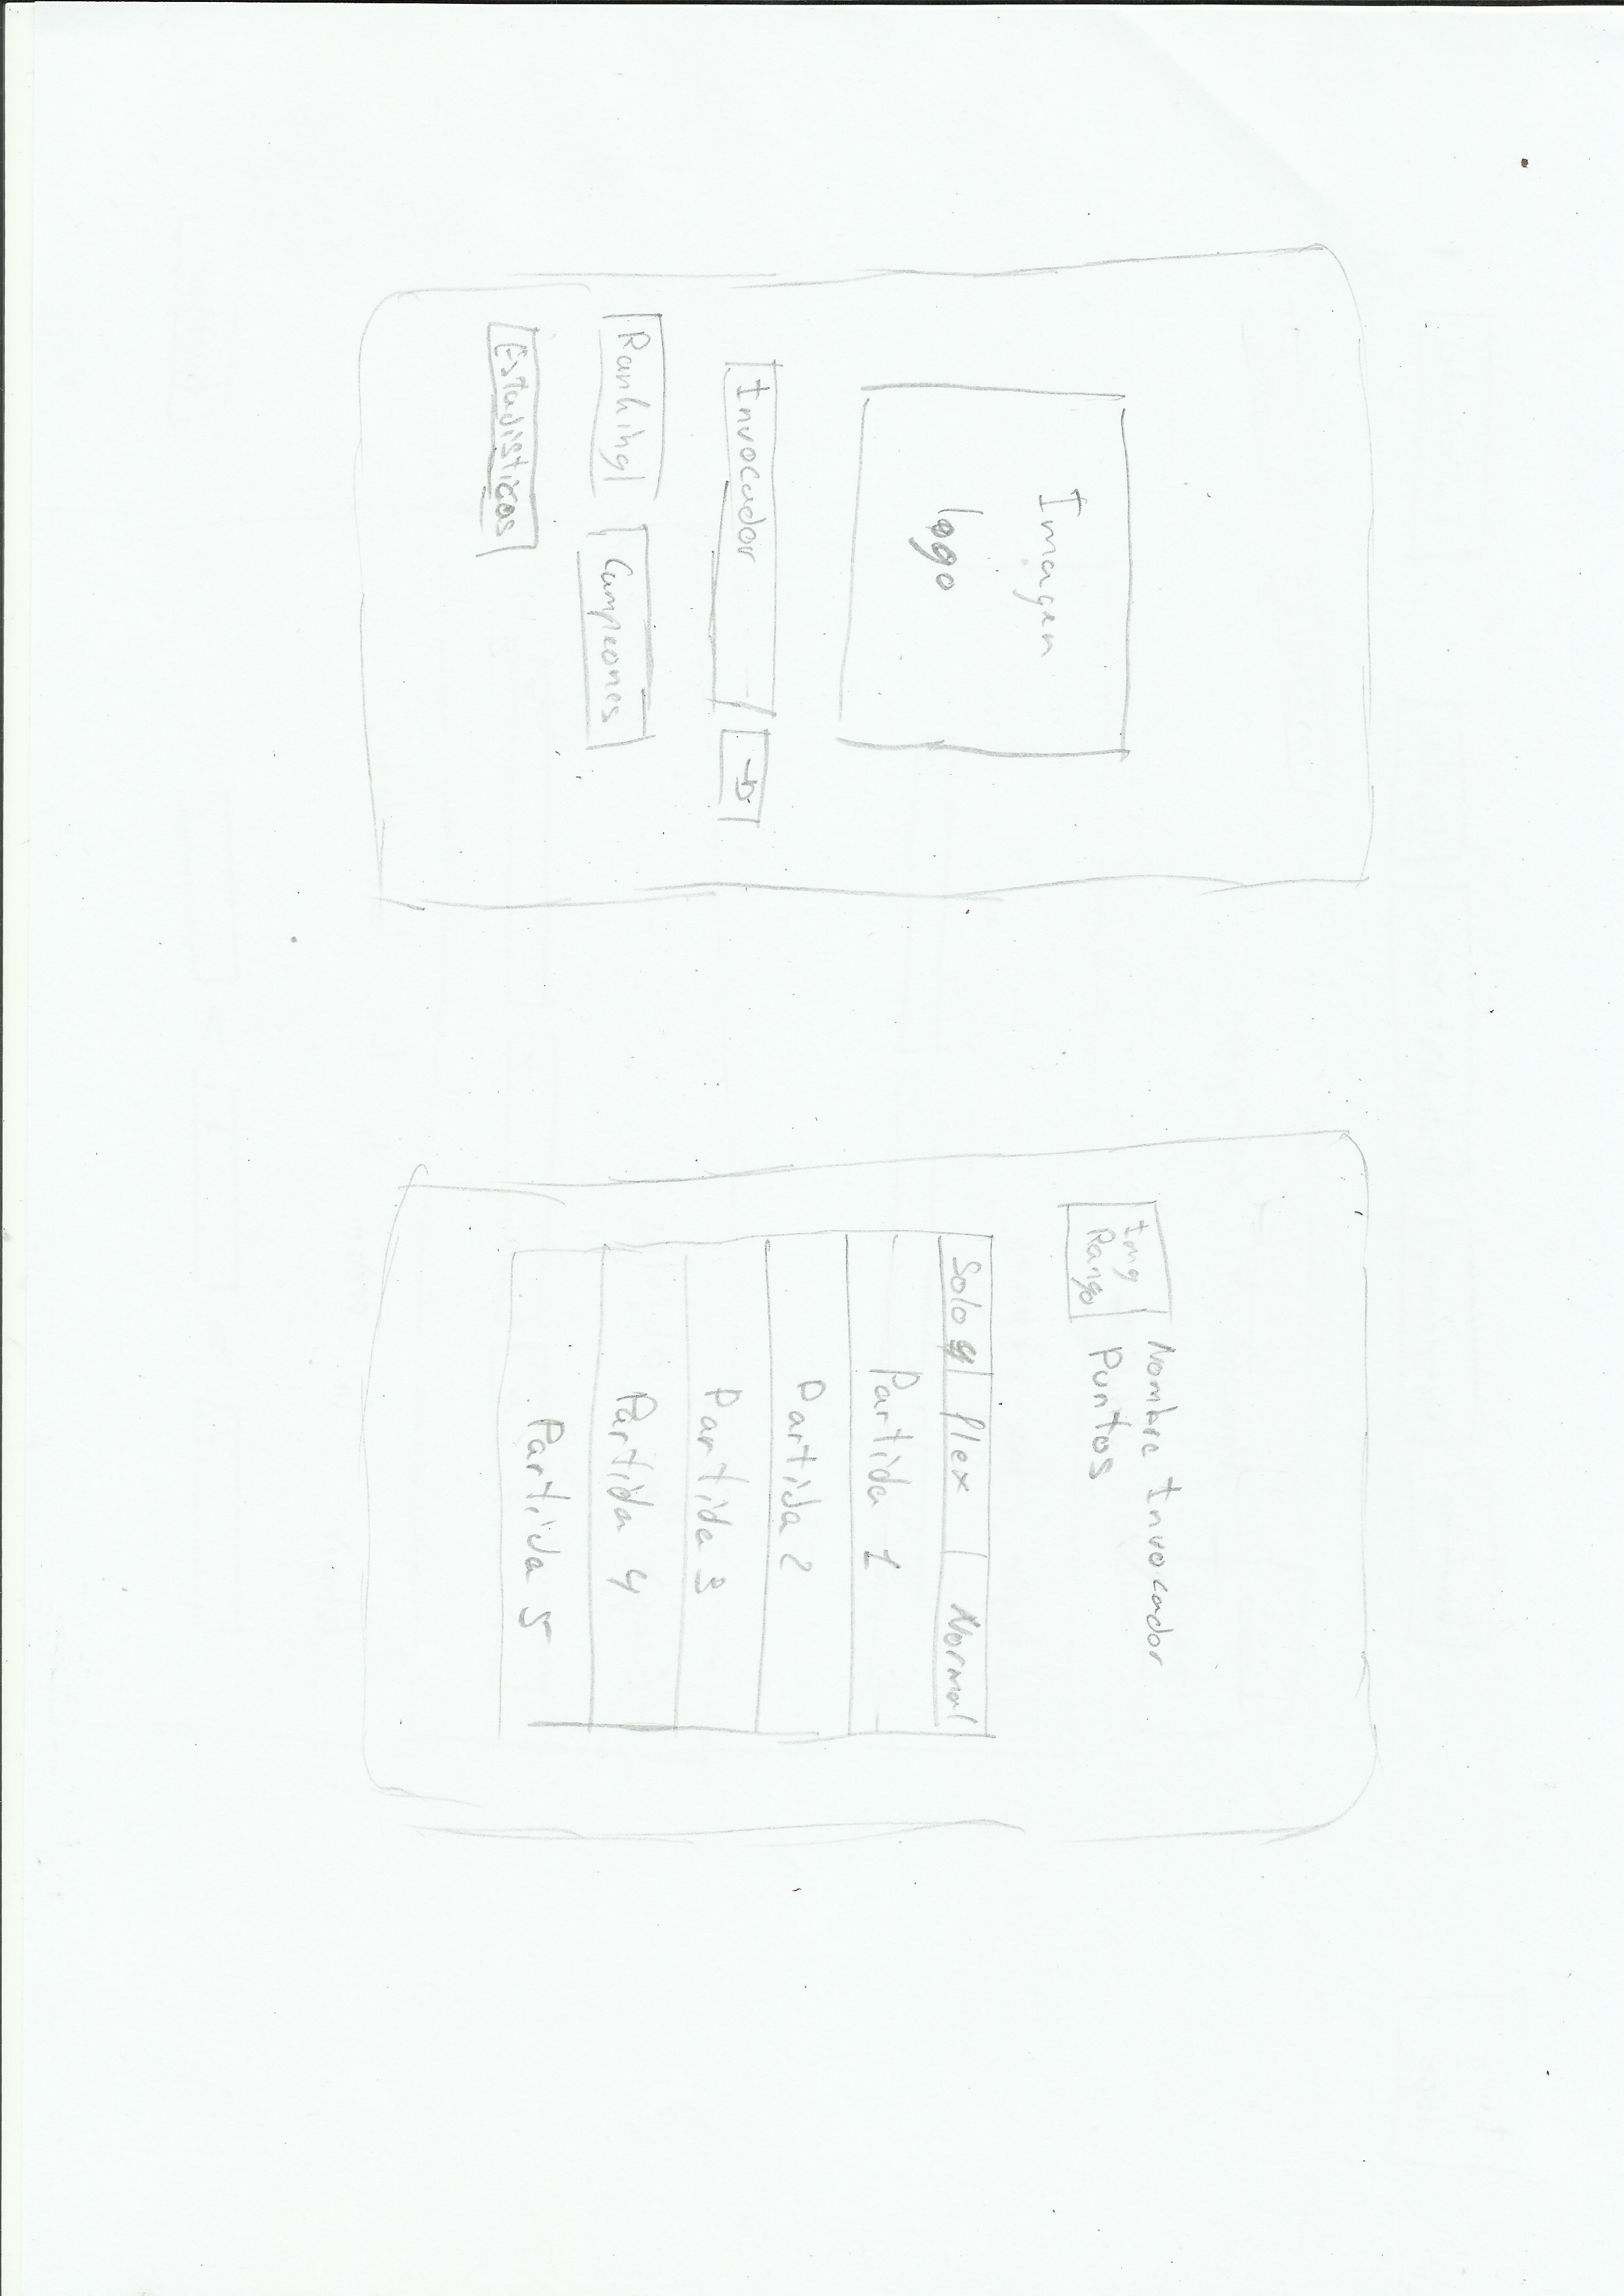 Imagen
logo
Invocador
Ranking
Campeones
Estadisticas
Img
Rango
Nombre Invocador
Puntos
Solo q
flex
Normal
Partida 1
Partida 2
Partida 3
Partida 4
Partida 5